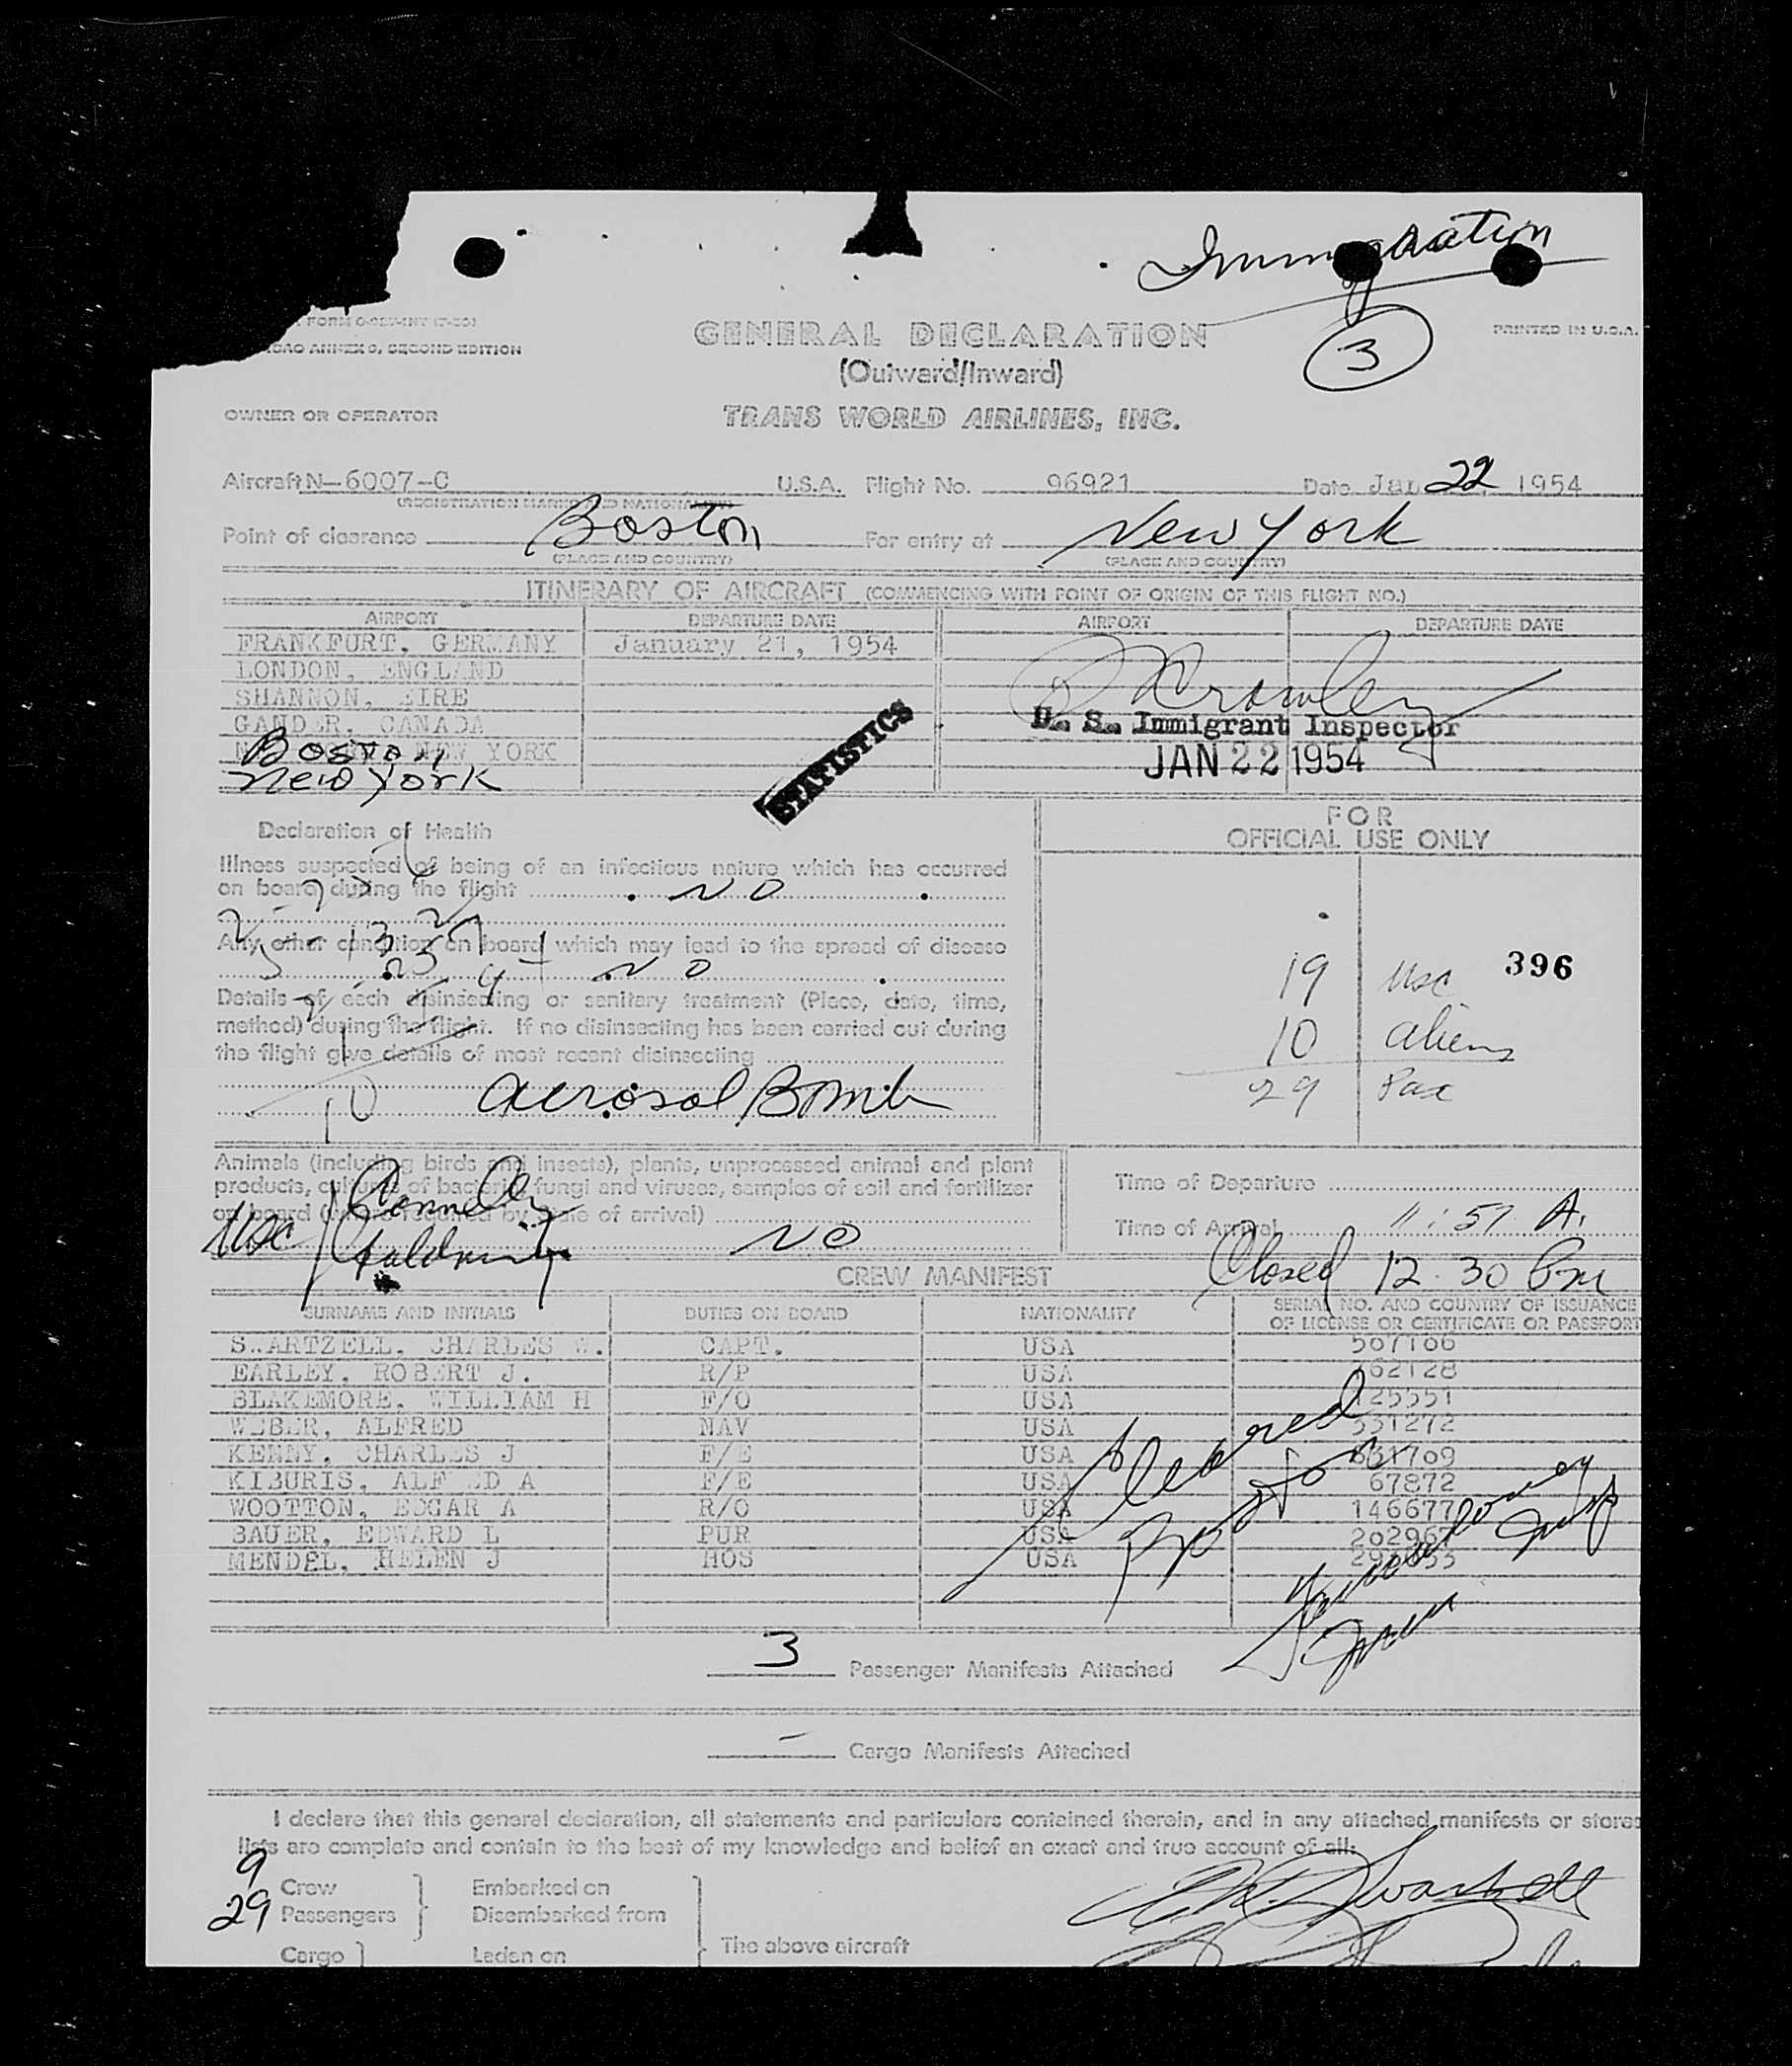 Immigration
FORM O-
ICAO ANNEX 9, SECOND EDITION
GENERAL DECLARATION
PRINTED IN U.S.A.
3
(Outward/Inward)
OWNER OR OPERATOR
TRANS WORLD AIRLINES, INC.
Aircraft N-6007-C U.S.A. Flight No. 96921 Date Jan 22 1954
(REGISTRATION MARKS AND NATIONALITY)
Point of clearance Boston For entry at New York
(PLACE AND COUNTRY) (PLACE AND COUNTRY)
ITINERARY OF AIRCRAFT (COMMENCING WITH POINT OF ORIGIN OF THIS FLIGHT NO.)
AIRPORT DEPARTURE DATE AIRPORT DEPARTURE DATE
FRANKFURT, GERMANY January 21, 1954
LONDON, ENGLAND
SHANNON, EIRE
GANDER, CANADA
NEW YORK
Boston
New York
Crowley
U. S. Immigrant Inspector
JAN 22 1954
STATISTICS
Declaration of Health
Illness suspected of being of an infectious nature which has occurred
on board during the flight NO
Any other condition on board which may lead to the spread of disease
NO
Details of each disinsecting or sanitary treatment (Place, date, time,
method) during the flight. If no disinsecting has been carried out during
the flight give details of most recent disinsecting
10 Aerosol Bomb
FOR
OFFICIAL USE ONLY
396
19 USC
10 aliens
29 Pax
Animals (including birds and insects), plants, unprocessed animal and plant
products, cultures of bacteria, fungi and viruses, samples of soil and fertilizer
on board (when required by State of arrival)
NO
USC Connelly
Time of Departure
Time of Arrival 11:57 A.
Closed 12.30 Pm
CREW MANIFEST
SURNAME AND INITIALS DUTIES ON BOARD NATIONALITY SERIAL NO. AND COUNTRY OF ISSUANCE
OF LICENSE OR CERTIFICATE OR PASSPORT
S.ARTZELL, CHARLES W. CAPT. USA 507106
EARLEY, ROBERT J. R/P USA 62128
BLAKEMORE, WILLIAM H F/O USA 125551
WEBER, ALFRED NAV USA 331272
KENNY, CHARLES J F/E USA 31709
KIBURIS, ALFRED A F/E USA 67872
WOOTTON, EDGAR A R/O USA 146677
BAUER, EDWARD L PUR USA 202967
MENDEL, HELEN J HOS USA
Cleared
Boston
3 Passenger Manifests Attached
- Cargo Manifests Attached
I declare that this general declaration, all statements and particulars contained therein, and in any attached manifests or stores
lists are complete and contain to the best of my knowledge and belief an exact and true account of all:
9 Crew Embarked on
29 Passengers Disembarked from
Cargo Laden on The above aircraft
C.W. Swartzell